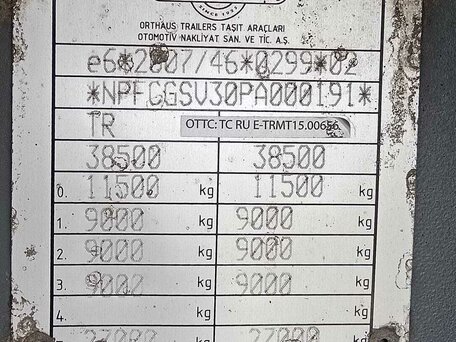 SINCE 1993
ORTHAUS TRAILERS TAŞIT ARAÇLARI
OTOMOTİV NAKLİYAT SAN. VE TİC. A.Ş.
e6*2007/46*0299*02
*NPFCGSV30PA000191*
TR OTTC: TC RU E-TRMT15.00656.
38500 38500
0. 11500 kg 11500 kg
1. 9000 kg 9000 kg
2. 9000 kg 9000 kg
3. 9000 kg 9000 kg
4. kg kg
27000 27000